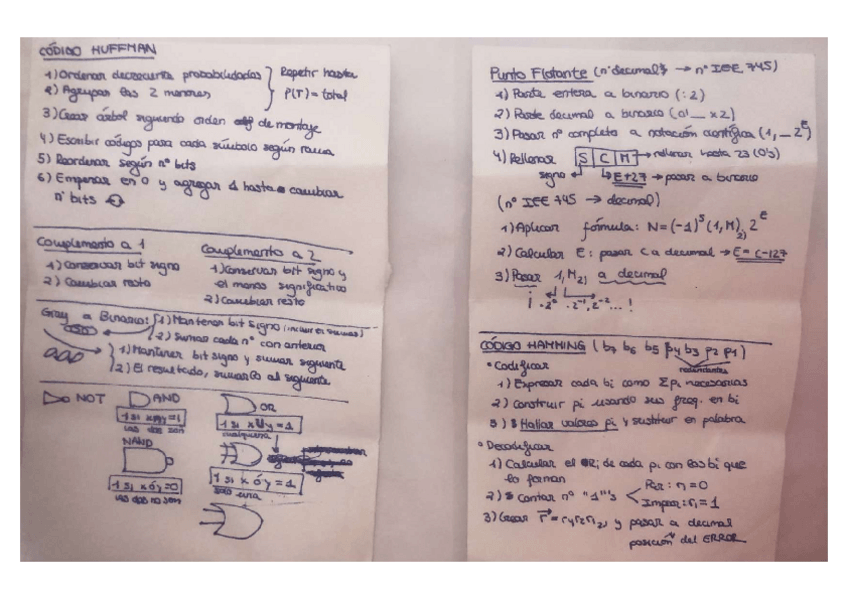 CÓDIGO HUFFMAN
1) Ordenar decreciente probabilidades
2) Agrupar las 2 menores
Repetir hasta
P(T) = total
3) Crear árbol siguiendo orden de montaje
4) Escribir códigos para cada símbolo según rama
5) Reordenar según nº bits
6) Empezar en 0 y agregar 1 hasta cambiar
nº bits
Complemento a 1
1) Conservar bit signo
2) Cambiar resto
Complemento a 2
1) Conservar bit signo y
el menos significativo
2) Cambiar resto
Gray a Binario: 1) Mantener bit signo (incluir en sumas)
2) Sumar cada nº con anterior
1) Mantener bit signo y sumar siguiente
2) El resultado, sumarlo al siguiente
NOT
AND
1 si x y y = 1
las dos son
OR
1 si x y = 1
cualquiera
NAND
1 si x ó y = 0
las dos no son
1 si x ó y = 1
solo una
Punto Flotante (nº decimal → nº IEE 745)
1) Parte entera a binario (:2)
2) Parte decimal a binario (0'_ x2)
3) Pasar nº completo a notación científica (1,_ 2^e)
4) Rellenar S C M → rellenar hasta 23 (0's)
signo
E+27 → pasar a binario
(nº IEE 745 → decimal)
1) Aplicar fórmula: N=(-1)^s (1,M)_2) 2^e
2) Calcular E: pasar C a decimal → E = C-127
3) Pasar 1,M_2) a decimal
¡ ·2^0 ·2^-1, 2^-2 ... !
CÓDIGO HAMMING (b7 b6 b5 p4 b3 p2 p1)
redundantes
• Codificar
1) Expresar cada bi como Σpi necesarias
2) Construir pi usando sus freq. en bi
3) Hallar valores pi y sustituir en palabra
• Decodificar
1) Calcular el ri de cada pi con las bi que
lo forman
2) Contar nº "1"s
Par: ri = 0
Impar: ri = 1
3) Crear r = r4 r2 r1 2) y pasar a decimal
posición del ERROR